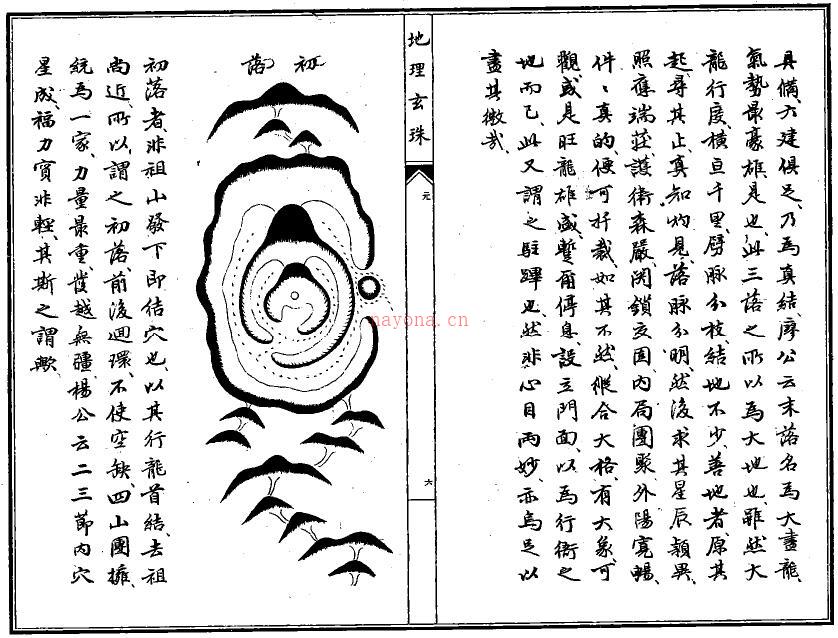 具備、六建俱足、乃爲真結、廖公云末落名爲大盡龍、
氣勢最豪雄是也、此三落之所以爲大地也、雖然大
龍行度、橫亘千里、劈脉分枝、結地不少、善地者、原其
起尋其止、真知灼見、落脉分明、然後求其星辰穎異、
照應端莊、護衛森嚴、関鎖交固、內局團聚、外陽寬暢、
件、真的、便可扦裁、如其不然、縱合大格、有大象、可
觀或是旺龍雄盛、暫爾停息、設立門面、以爲行衙之
地而已、此又謂之駐蹕也、然非心目両妙、亦烏足以
盡其微哉、
地理玄珠
元
六
初落
初落者、非祖山發下即結穴也、以其行龍首結、去祖
尚近、所以謂之初落、前後迴環、不使空缺、四山團擁、
統爲一家、力量最重、發越無疆、楊公云二三節內穴
星成、福力實非輕、其斯之謂歟、
nayona.cn